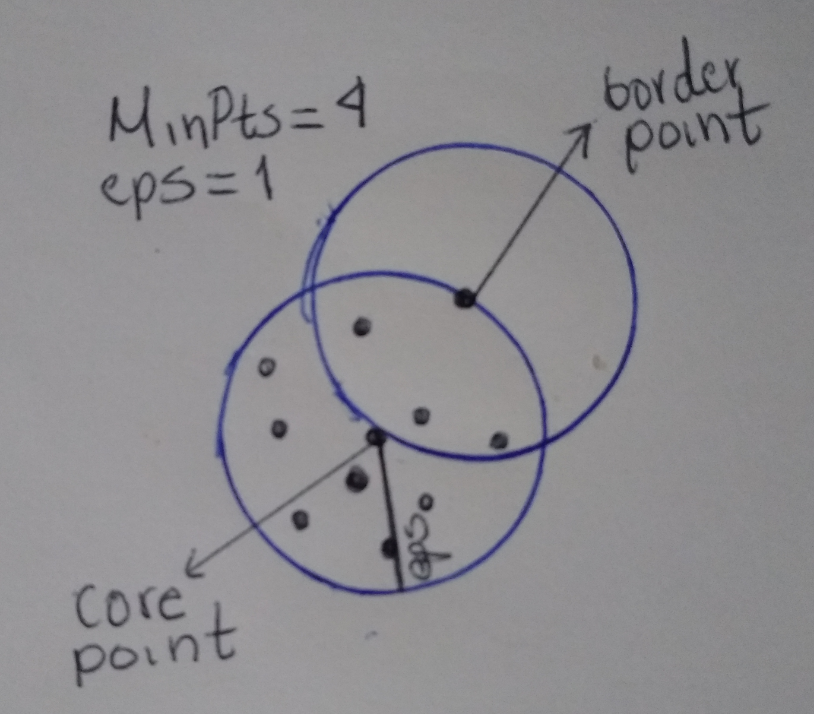 MinPts=4
eps=1
border
point
eps
Core
point